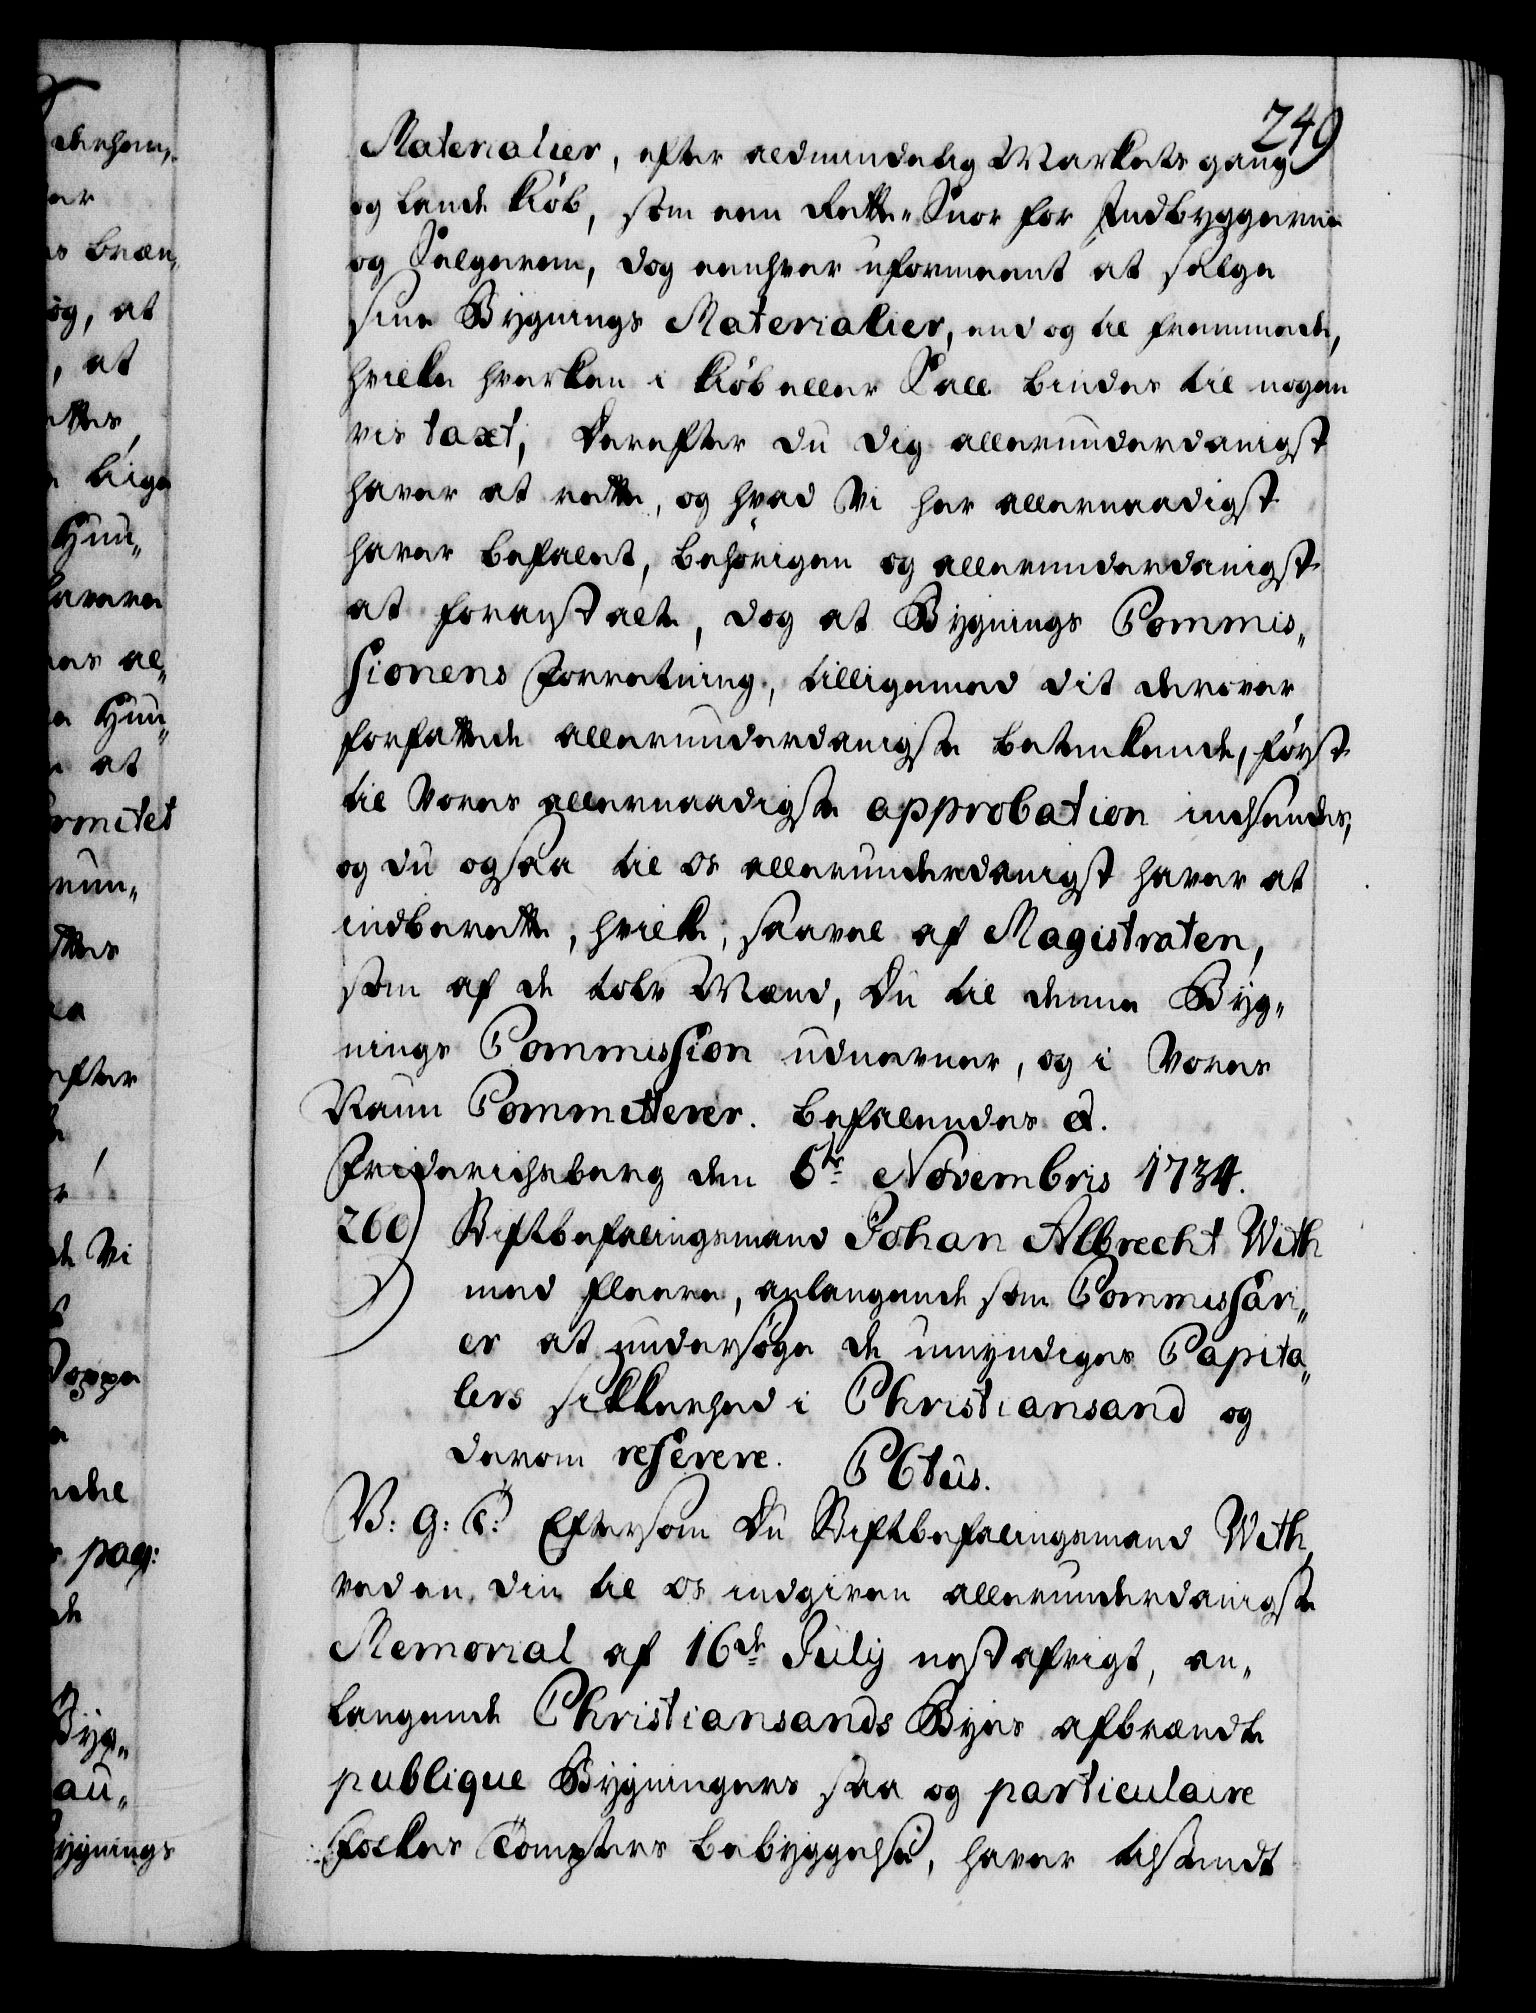 249
Materialier, efter aldmindelig Markets gang
og Lands Kiöb, som een Rette-Snor for Indbyggerne
og Selgeren, dog eenhver uformeent at sælge
sine Bygnings Materialier, end og til fremmede,
hvilke hverken i Kiöb eller Sall bindes til nogen
vis taxt, Derefter du dig allerunderdanigst
haver at rette, og hvad Vi her allernaadigst
haver befalet, behörigen og allerunderdanigst
at foranstalte, dog at Bygnings Commis„
sionens Forretning, tilligemed dit derover
forfattede allerunderdanigste betænkende, först
til Vores allernaadigste approbation indsendes,
og du ogsaa til os allerunderdanigst haver at
indberette, hvilke, saavel af Magistraten,
som af de tolv Mænd, Du til denne Byg„
nings Commission udnevner, og i Vores
Naun Committerer. Befalendes &.
Friderichsberg den 6te Novembris 1734.
260) Stiftbefalingsmand Johan Albrecht With
med fleere, anlangende som Commissari„
er at undersöge de umyndiges Capita„
lers sikkerhed i Christiansand og
derom referere. PCtus.
V: G: T: Eftersom Du Stiftbefalingsmand With,
ved en din til os indgiven allerunderdanigste
Memorial af 16de July nestafvigt, an„
langende Christiansands Byes afbrændte
publique Bygningers saa og particulaire
Folkes Tompters bebyggelse, haver tilkiendt